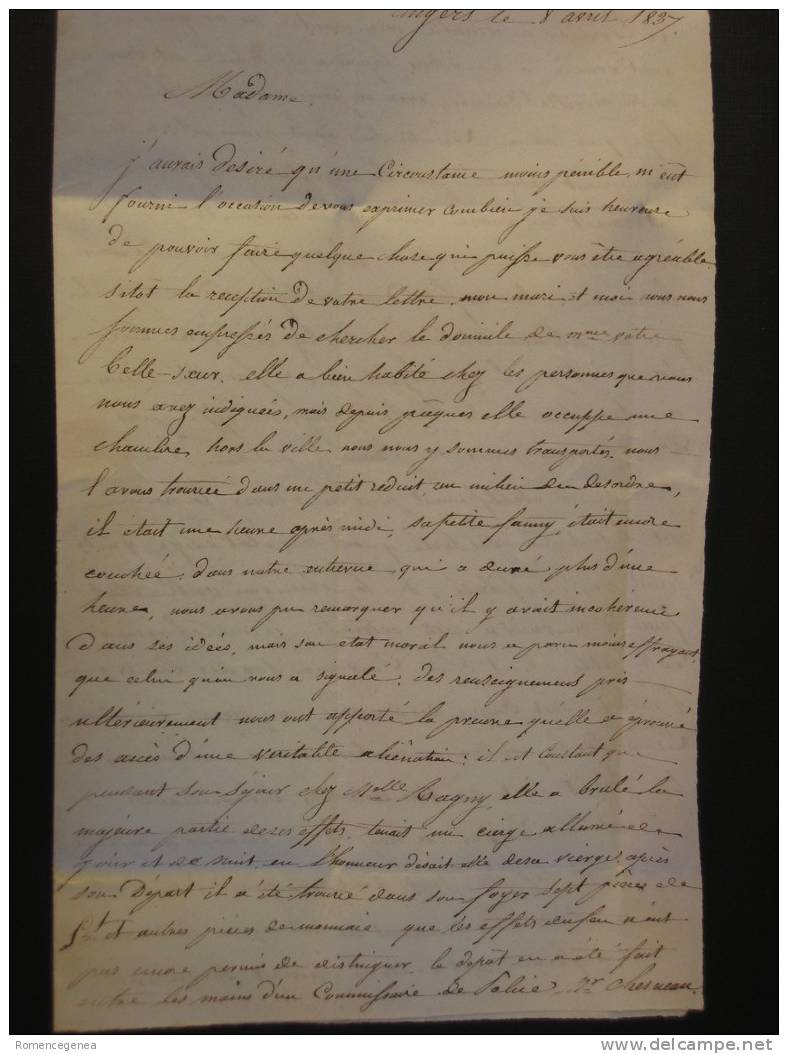 Angers le 8 avril 1837.
Madame,
j'aurais desiré qu'une Circonstance moins pénible, m'eut
fourni l'occasion de vous exprimer combien je suis heureuse
de pouvoir faire quelque chose qui puisse vous être agréable.
sitôt la reception de votre lettre, mon mari et moi nous nous
sommes empressés de chercher le domicile de mme votre
belle-sœur. elle a bien habité chez les personnes que vous
nous avez indiquées, mais depuis pâques elle occuppe une
chambre hors la ville nous nous y sommes transportés. nous
l'avons trouvée dans un petit réduit, au milieu du desordre,
il était une heure après midi, sa petite fanny, était encore
couchée. dans notre entrevue qui a duré plus d'une
heure, nous avons pu remarquer qu'il y avait incohérence
dans ses idées, mais son état moral nous a paru moins effrayant,
que celui qu'on vous a signalé. des renseignements pris
ultérieurement nous ont apporté la preuve qu'elle a éprouvé
des accès d'une veritable aliénation: il est constant que
pendant son séjour chez Melle Ragny, elle a brulé la
majeure partie de ses effets, tenait un cierge allumé de
jour et de nuit, en l'honneur disait elle de sa vierge. après
son Départ il a été trouvé dans son foyer sept pièces de
5f et autres pièces de monnaie que les effets du feu n'ont
pas encore permis de distinguer. le depot en a été fait
entre les mains d'un Commissaire de Police Mr Chesneau.
Romencegenea
delcampe.net